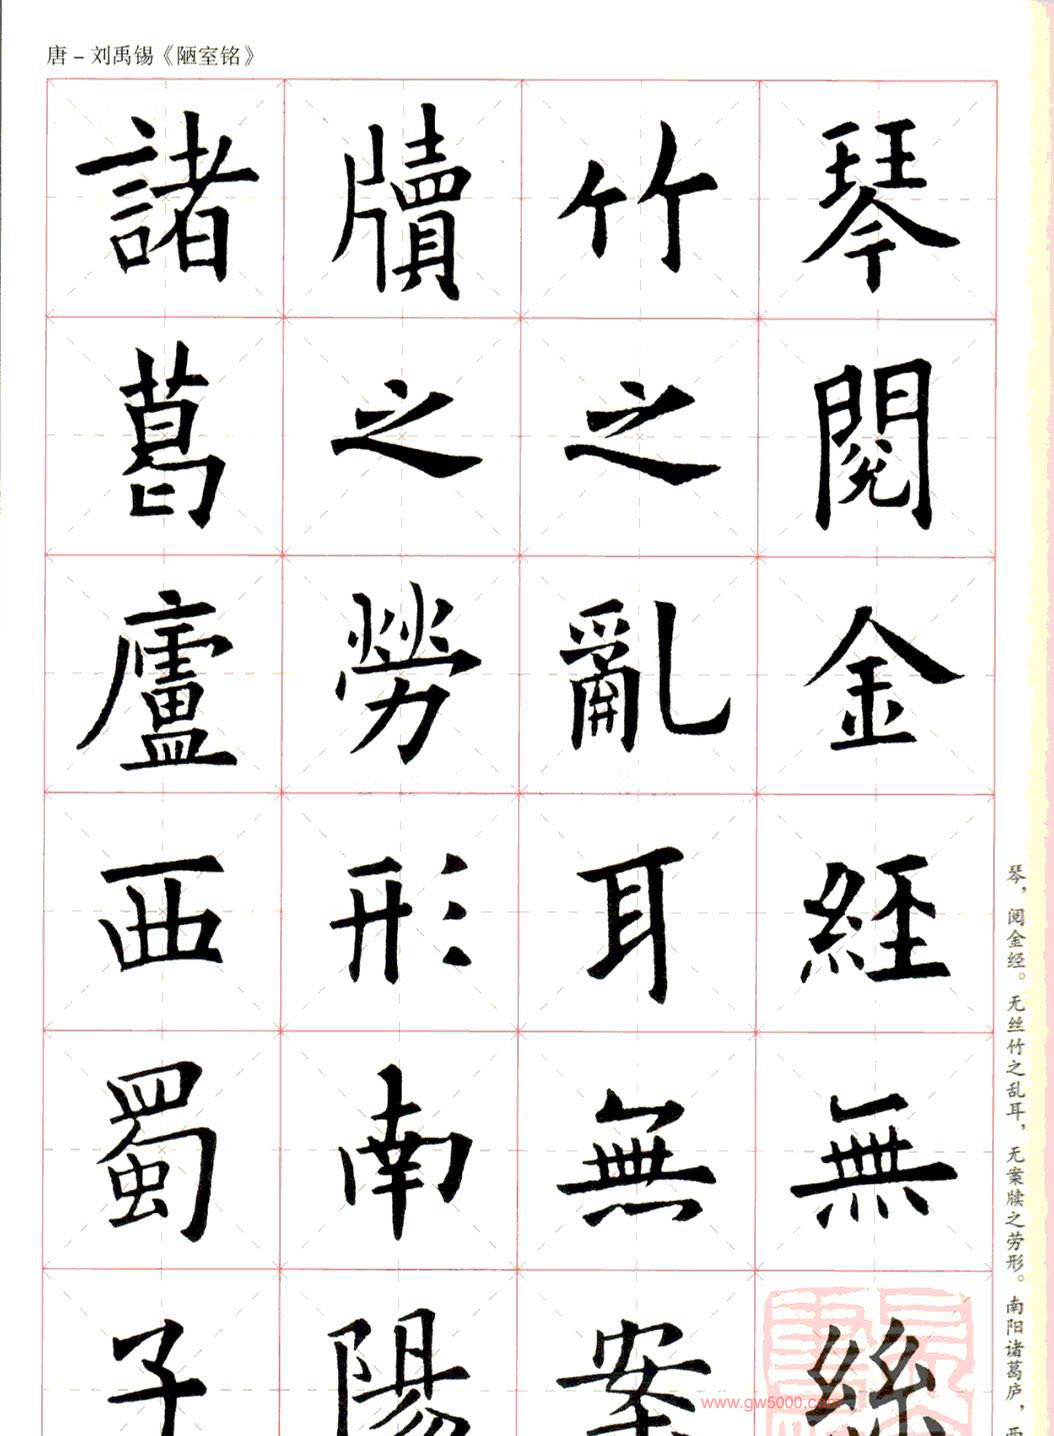 唐－刘禹锡《陋室铭》
琴閱金經無絲
竹之亂耳無案
牘之勞形南陽
諸葛廬西蜀子
琴，阅金经。无丝竹之乱耳，无案牍之劳形。南阳诸葛庐，西
www.gw5000.com